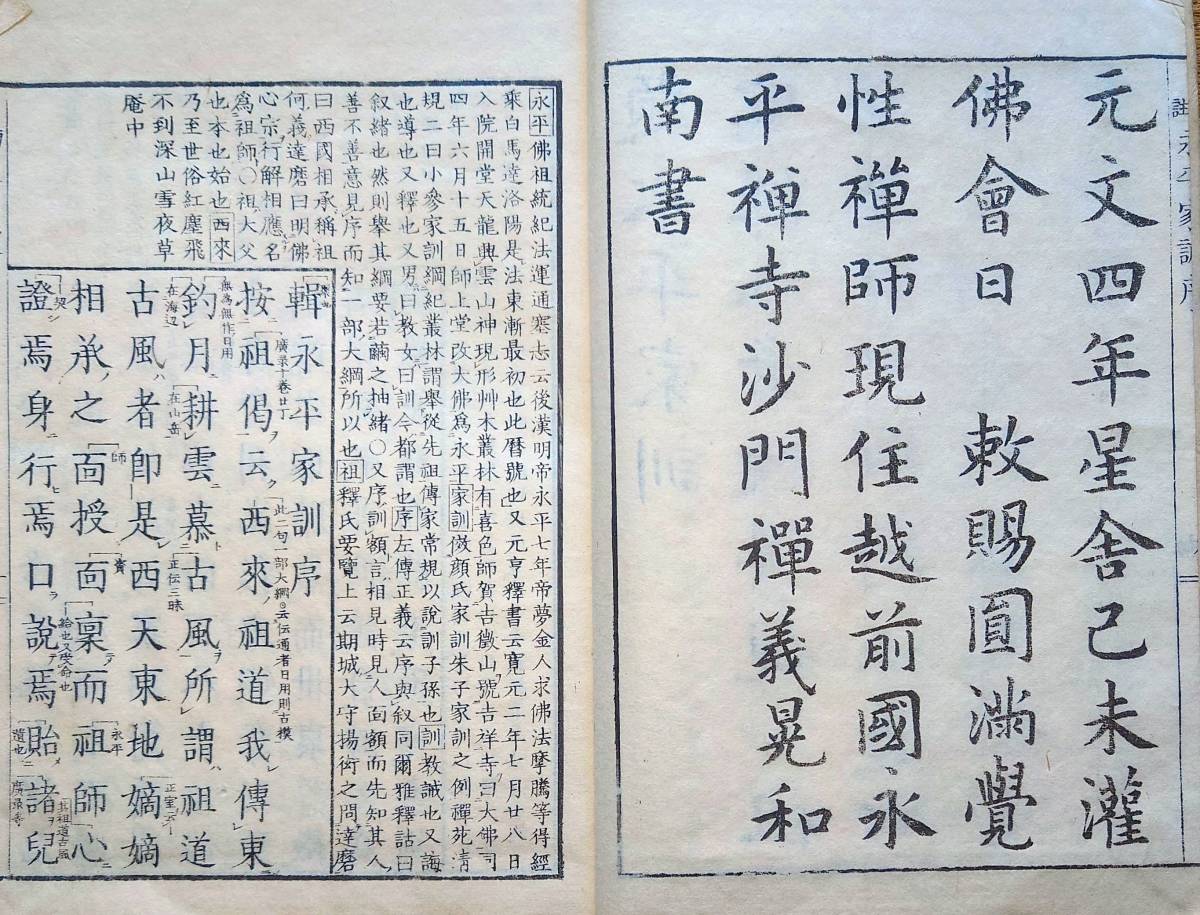 元文四年星舎己未灌
佛會日　敕賜圓滿覺
性禪師現住越前國永
平禅寺沙門禪義晃和
南書
永平佛祖統紀法運通塞志云後漢明帝永平七年帝夢金人求佛法摩騰等得經
乘白馬達洛陽是法東漸最初也此曆號也又元亨釋書云寛元二年七月廿八日
入院開堂天龍興雲山神現形艸木叢林有喜色師賀古徵山號吉祥寺曰大佛司
四年六月十五日師上堂改大佛爲永平家訓倣顏氏家訓朱子家訓之例禪苑清
規二曰小參家訓綱紀叢林謂舉從先祖傳家常規以說訓子孫也訓教誡也又誨
也導也又釋也又男曰教女曰訓今都謂也序左傳正義云序與叙同爾雅釋詁曰
叙緒也然則舉其綱要若繭之抽緒○又序訓額言相見時見人面額而先知其人
善不善意見序而知一部大綱所以也祖釋氏要覽上云期城大守揚衒之問達磨
曰西國相承稱祖
何義達磨曰明佛
心宗行解相應名
爲祖師○祖大父
也本也始也西來
乃至世俗紅塵飛
不到深山雪夜草
庵中
輯永平家訓序
按祖偈云西來祖道我傳東
釣月耕雲慕古風所謂祖道
古風者卽是西天東地嫡嫡
相承之面授面稟而祖師心
證焉身行焉口說焉貽諸兒
廣录十卷廿丁
此二句一部大綱
云伝通者日用則古模
無為無作日用
在海辺
在山岳
正伝三昧
師
資
給也又受命也
永平
遺也